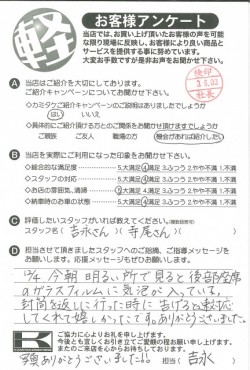 軽
お客様アンケート
当店では、お買い上げ頂いたお客様の声を可能
な限り現場に反映し、お客様により良い商品と
サービスを提供する事に努めています。
大変お手数ですが是非お声をお聞かせ下さい。
検印
社長
A 当店はご紹介を大切にしております。
ご紹介キャンペーンについてお聞かせ下さい。
◇カミタケご紹介キャンペーンのご説明はありましたでしょうか
はい いいえ
◇具体的にご紹介頂ける方とのご関係をお聞かせ頂けますでしょうか
ご親族 ご友人 職場の方 機会があれば紹介したい
B 当店を実際にご利用になった印象をお聞かせ下さい。
◇総合的な満足度 5.大満足 4.満足 3.ふつう 2.やや不満 1.不満
◇スタッフの対応 5.大満足 4.満足 3.ふつう 2.やや不満 1.不満
◇お店の雰囲気、清掃 5.大満足 4.満足 3.ふつう 2.やや不満 1.不満
◇納車時のお車の状態 5.大満足 4.満足 3.ふつう 2.やや不満 1.不満
C 評価したいスタッフがいれば教えてください。
スタッフ名( 吉永さん )( 寺尾さん )
D 担当させて頂きましたスタッフへのご指摘、ご指導メッセージを
お願いします。応援メッセージもぜひお願いします。
今朝明るい所で見ると後部座席
のガラスフィルムに気泡が入っている。
封筒を返しに行った時に告げると対処
してくれて嬉しかったです。ありがとうございました。
K ご協力に心よりお礼を申し上げます。
今後とも宜しくお引き立てご愛顧の程お願い申し上げます。
またのご来店を心からお待ちしております。
ありがとうございました!! 担当( 吉永 )